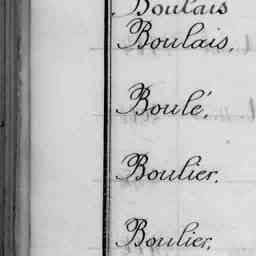 Boulais
Boulais,
Boulé,
Boulier.
Boulier,